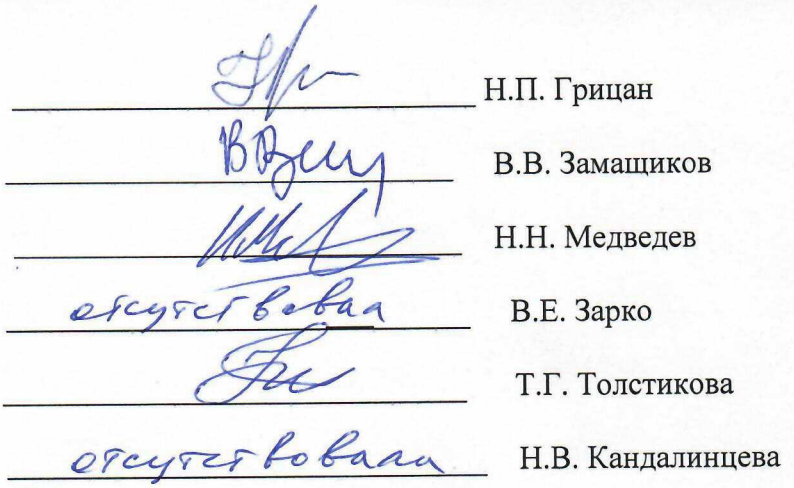 Н.П. Грицан
В.В. Замащиков
Н.Н. Медведев
отсутствовал В.Е. Зарко
Т.Г. Толстикова
отсутствовала Н.В. Кандалинцева